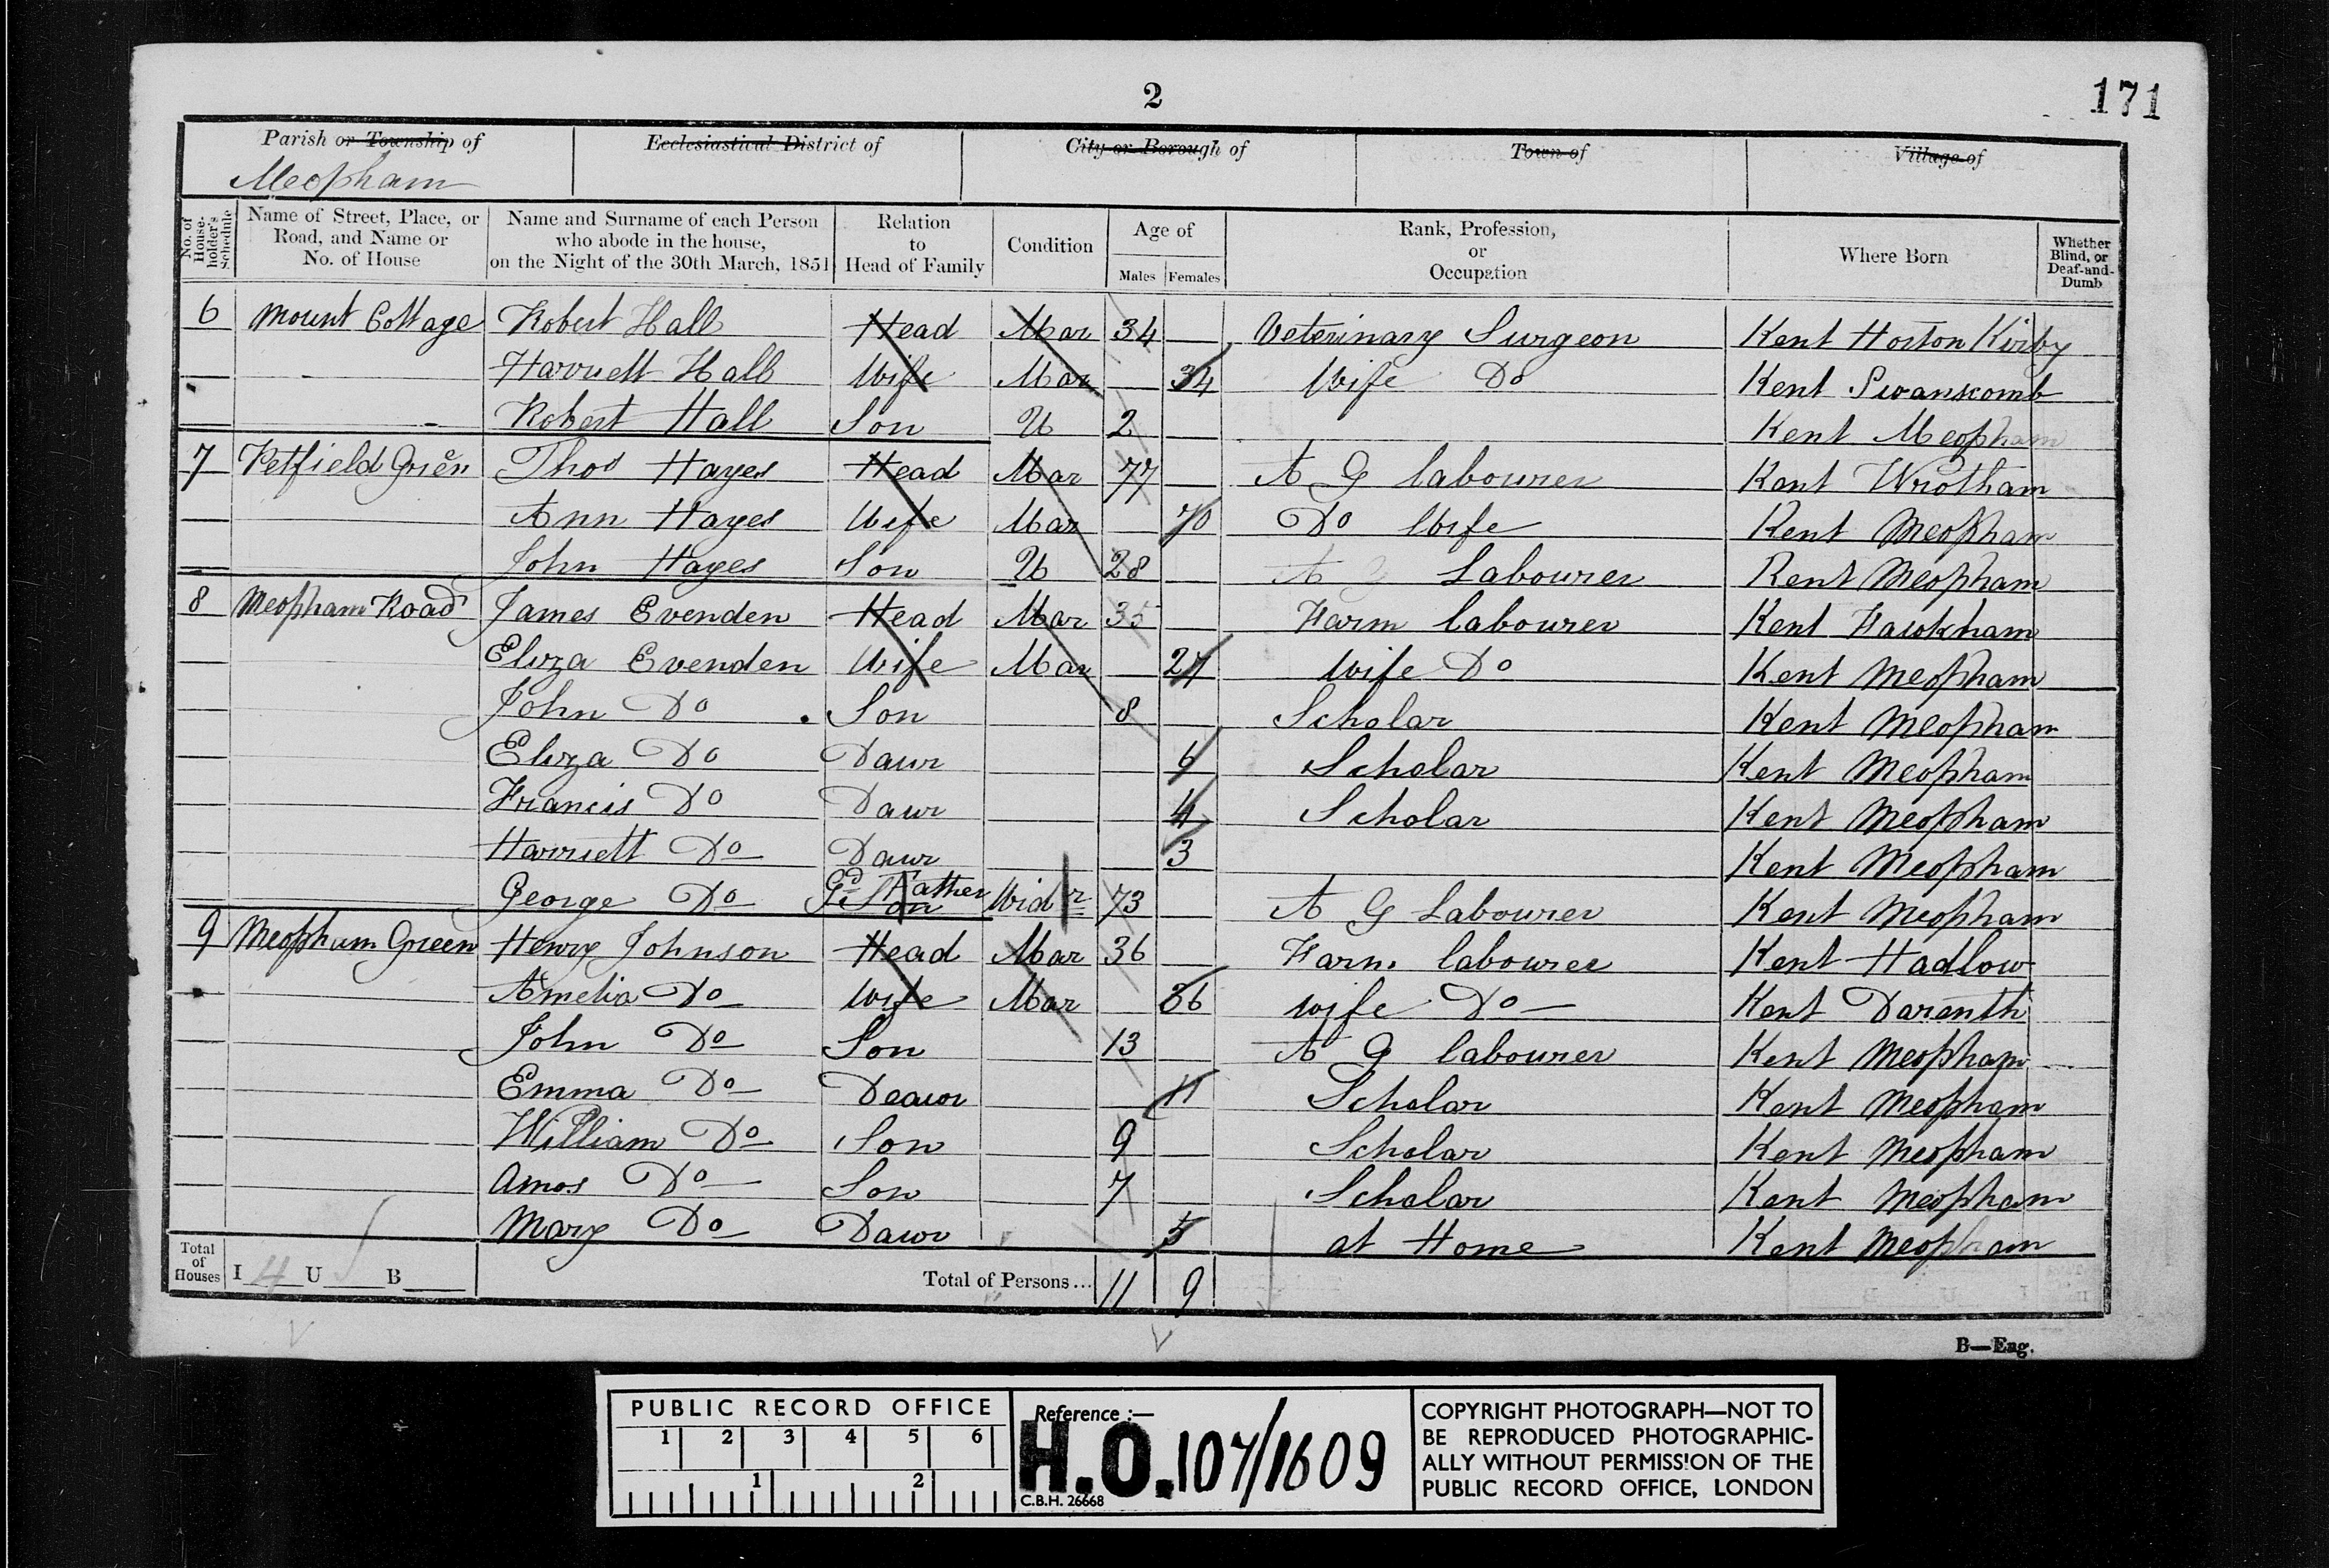 2
171
Parish or Township of Ecclesiastical District of City or Borough of Town of Village of
Meopham
No. of House-holder's Schedule Name of Street, Place, or Road, and Name or No. of House Name and Surname of each Person who abode in the house, on the Night of the 30th March, 1851 Relation to Head of Family Condition Age of Males Females Rank, Profession, or Occupation Where Born Whether Blind, or Deaf-and-Dumb
6 Mount Cottage Robert Hall Head Mar 34 Veterinary Surgeon Kent Horton Kirby
Harriett Hall Wife Mar 34 Wife Do Kent Swanscomb
Robert Hall Son U 2 Kent Meopham
7 Green Thos Hayes Head Mar 77 A G labourer Kent Wrotham
Ann Hayes Wife Mar 70 Do Wife Kent Meopham
John Hayes Son U 28 A G Labourer Kent Meopham
8 Meopham Road James Evenden Head Mar 35 Farm labourer Kent Hawkham
Eliza Evenden Wife Mar 27 Wife Do Kent Meopham
John Do Son 8 Scholar Kent Meopham
Eliza Do Daur 6 Scholar Kent Meopham
Francis Do Daur 4 Scholar Kent Meopham
Harriett Do Daur 3 Kent Meopham
George Do Gd Father Widr 73 A G Labourer Kent Meopham
9 Meopham Green Henry Johnson Head Mar 36 Farm labourer Kent Hadlow
Amelia Do Wife Mar 36 Wife Do Kent Darenth
John Do Son 13 A G labourer Kent Meopham
Emma Do Deaur 11 Scholar Kent Meopham
William Do Son 9 Scholar Kent Meopham
Amos Do Son 7 Scholar Kent Meopham
Mary Do Daur 5 at Home Kent Meopham
Total of Houses I 4 U B Total of Persons... 11 9
B—Eng.
PUBLIC RECORD OFFICE
1 2 3 4 5 6
1 2
Reference :—
H.O. 107/1609
C.B.H. 26668
COPYRIGHT PHOTOGRAPH—NOT TO
BE REPRODUCED PHOTOGRAPHIC-
ALLY WITHOUT PERMISSION OF THE
PUBLIC RECORD OFFICE, LONDON